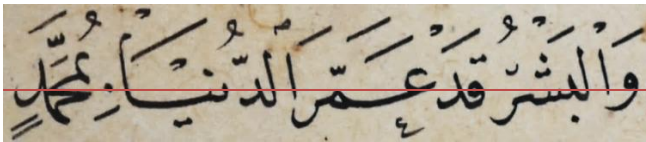 وَالْبِشْرُ قَدْ عَمَّرَ الدُّنْيَا بِمُحَمَّدٍ